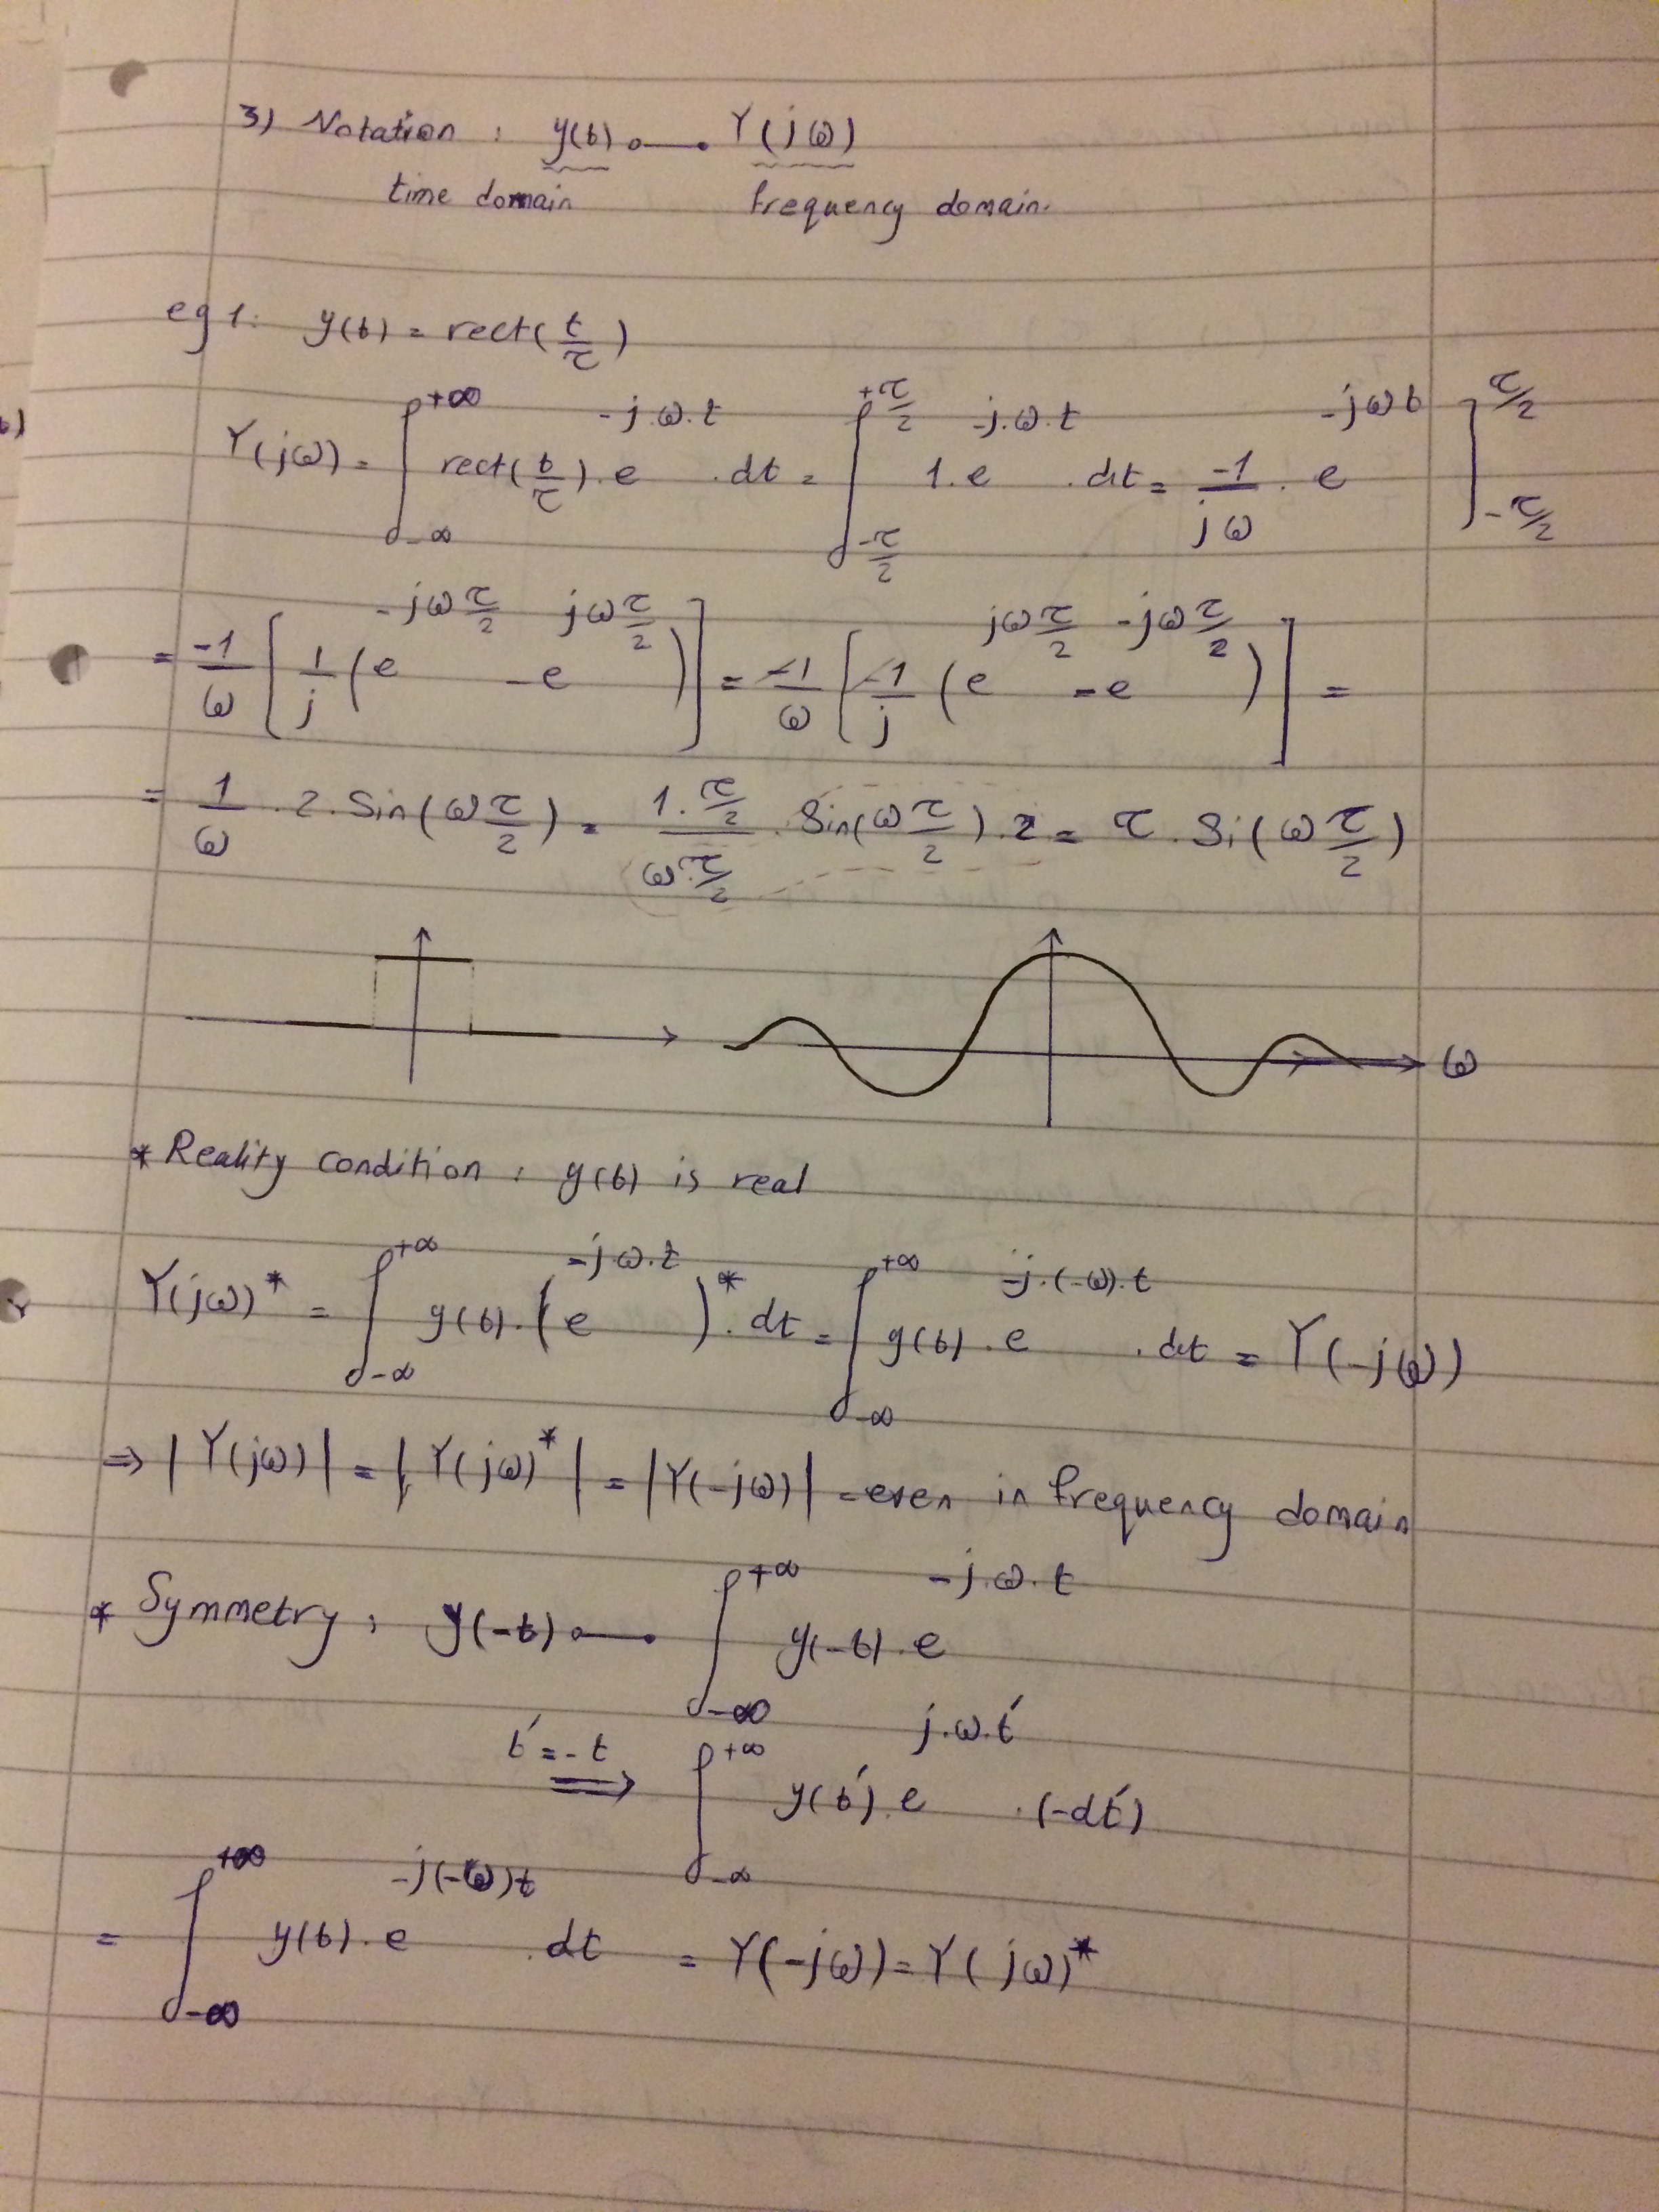 3) Notation : y(t) o—• Y(jω)
time domain frequency domain.
eg 1: y(t) = rect(t/τ)
Y(jω) = ∫_{-∞}^{+∞} rect(t/τ) . e^{-j.ω.t} . dt = ∫_{-τ/2}^{+τ/2} 1 . e^{-j.ω.t} . dt = -1/jω . e^{-jωt} ]_{-τ/2}^{τ/2}
= -1/ω [ 1/j (e^{-jω τ/2} - e^{jω τ/2}) ] = -1/ω [ -1/j (e^{jω τ/2} - e^{-jω τ/2}) ] =
= 1/ω . 2 . Sin(ω τ/2) = 1.τ/2 / ω.τ/2 . Sin(ω τ/2) . 2 = τ . Si(ω τ/2)
ω
* Reality condition : y(t) is real
Y(jω)* = ∫_{-∞}^{+∞} y(t) . (e^{-jω.t})* . dt = ∫_{-∞}^{+∞} y(t) . e^{-j.(-ω).t} . dt = Y(-jω)
⇒ |Y(jω)| = |Y(jω)*| = |Y(-jω)| = even in frequency domain
* Symmetry : y(-t) o—• ∫_{-∞}^{+∞} y(-t) . e^{-j.ω.t}
t' = -t ⟹ ∫_{-∞}^{+∞} y(t') . e^{j.ω.t'} . (-dt')
= ∫_{-∞}^{+∞} y(t) . e^{-j(-ω)t} . dt = Y(-jω) = Y(jω)*